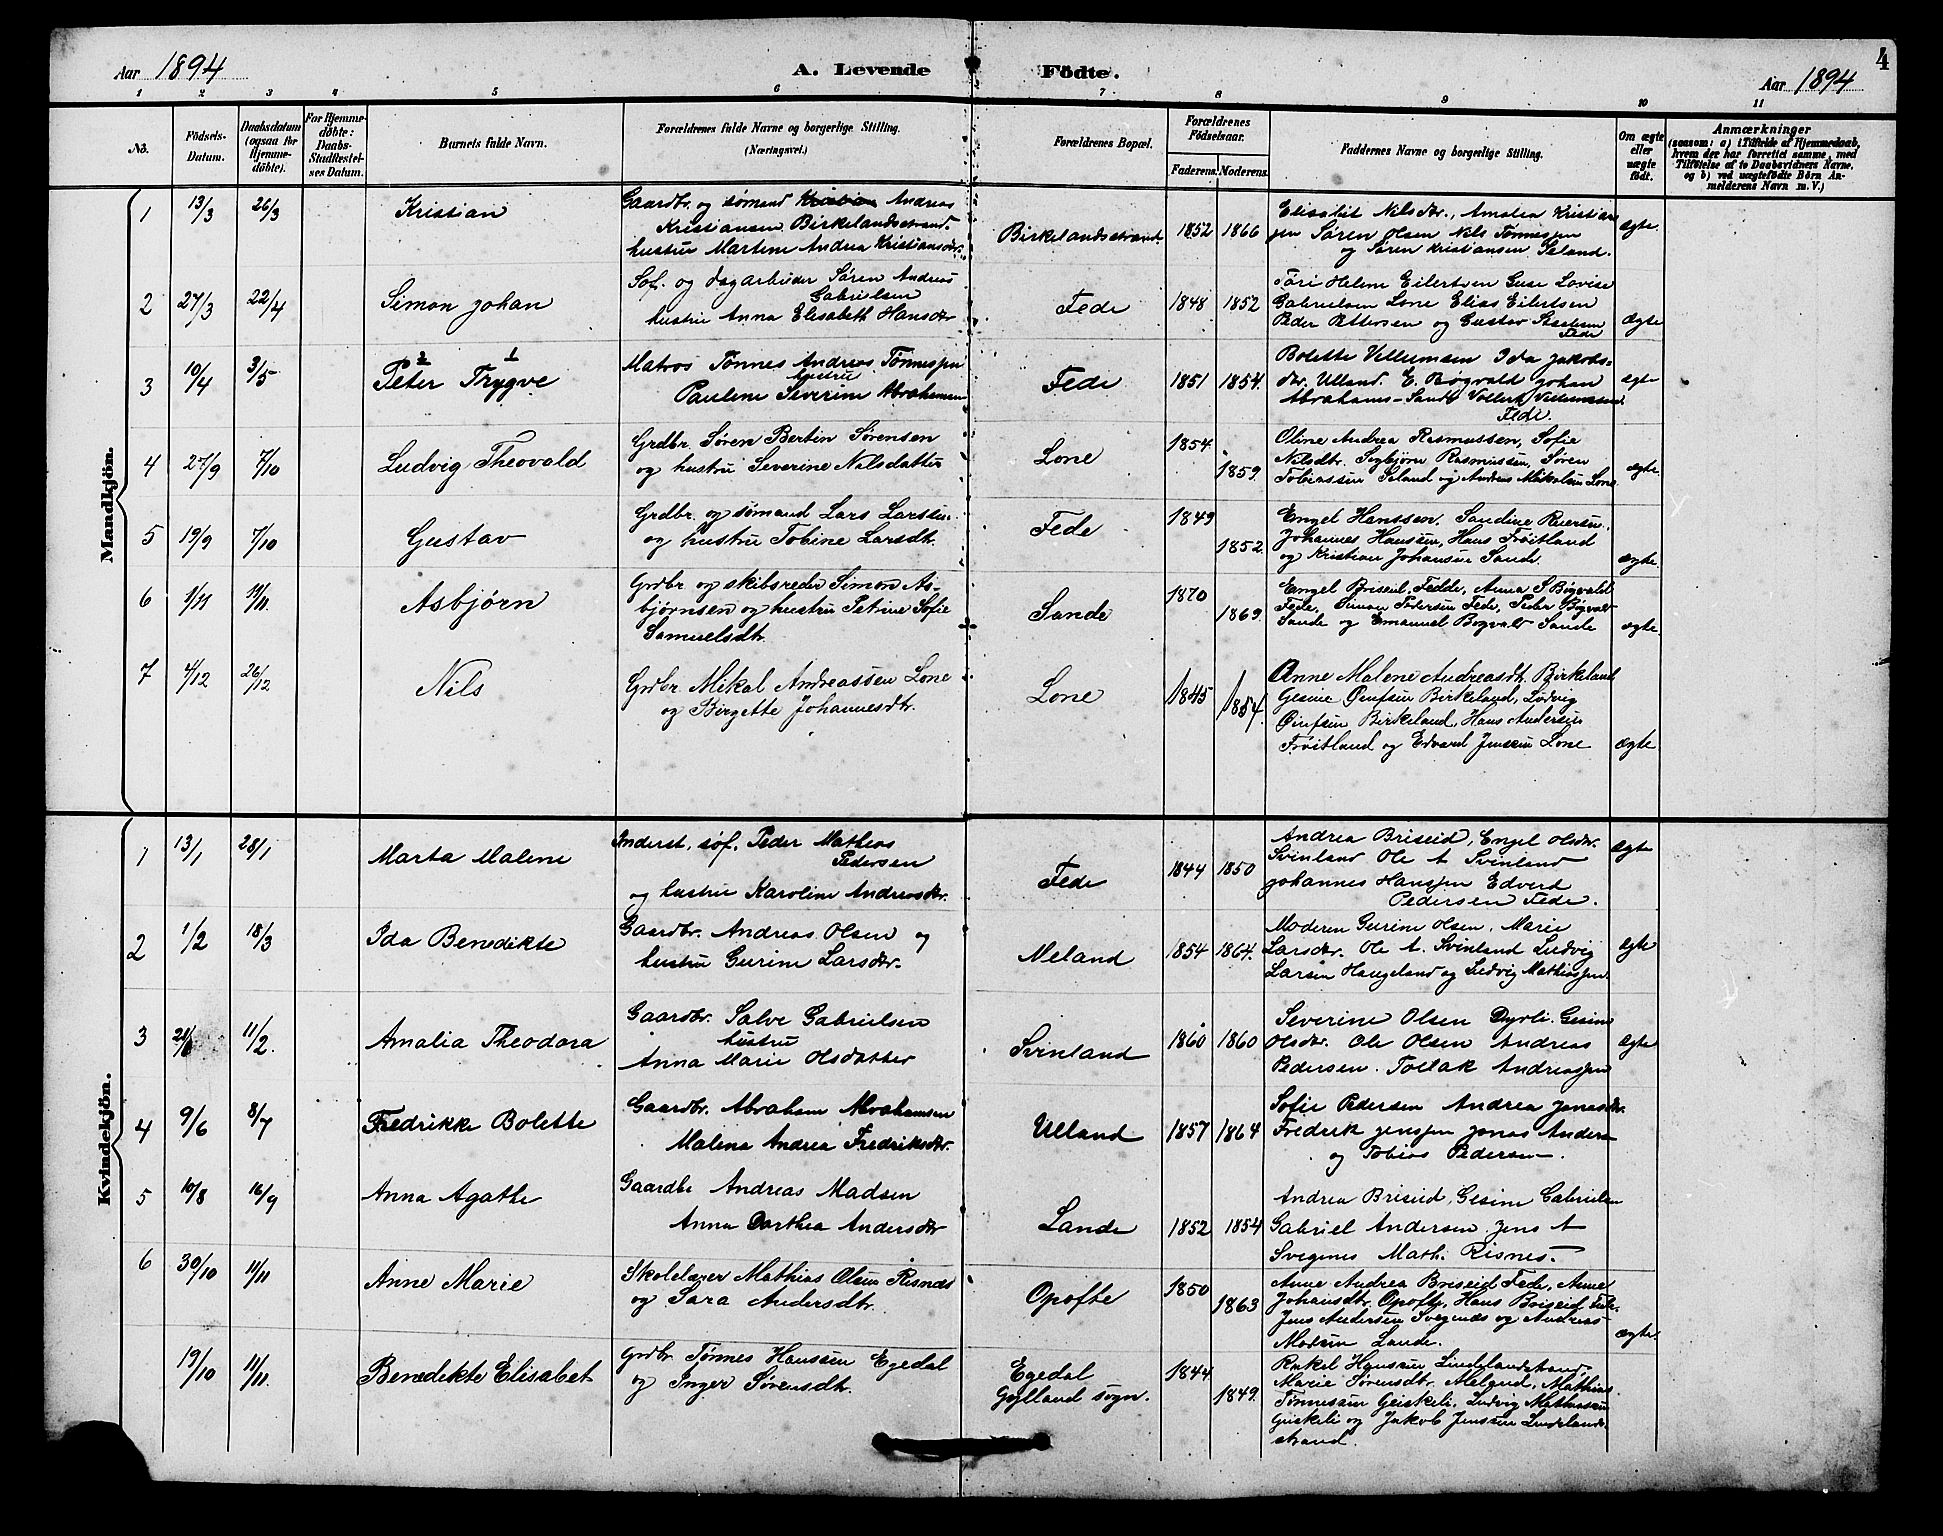 Aar 1894
A. Levende Födte.
Aar 1894
4
1 2 3 4 5 6 7 8 9 10 11
No.
Födsels-Datum.
Daabsdatum (ogsaa for Hjemmedøbte).
For Hjemmedøbte: Daabs-Stadfæstelses Datum.
Barnets fulde Navn.
Forældrenes fulde Navne og borgerlige Stilling.
(Næringsvei.)
Forældrenes Bopæl.
Forældrenes Födselsaar.
Faderens. Moderens.
Faddernes Navne og borgerlige Stilling.
Om ægte eller uægte födt.
Anmærkninger
(saasom: a) i Tilfælde af Hjemmedaab, hvem der har forrettet samme, med Tilföielse af to Daabsvidners Navne, og b) ved uægtefödte Börn Anmelderens Navn m. V.)
Mandkjön.
1 13/3 26/3 Kristian
Gaardbr. og sømand Andreas
Kristiansen Birkelandsstrand.
hustru Martine Andrea Kristiansdtr.
Birkelandsstrand. 1852 1866
Elisabet Nilsdtr., Amalia Kristian
sen Søren Olsen Nils Tønnessen
og Søren Kristiansen Seland.
Ægte
2 27/3 22/4 Simon Johan
Søf. og dagarbeider Søren Andreas
Gabrielsen
hustru Anna Elisabeth Hansdtr
Fede 1848 1852
Tóri Helene Eilertsen Guse Lovise
Gabrielsen Lone Elias Eilertsen
Peder Pettersen og Gustav
Fede
Ægte
3 10/4 3/5 Peter 2 Trygve 1
Matros Tønnes Andreas Tønnessen
hustru
Pauline Severine Abrahamsen
Fede 1851 1854.
Bolette Villumsen Ida Jakobs-
dtr. Ulland. E. Bøgvald Johan
Abrahams- Sande Vollert Villumssen
Fede.
ægte
4 27/9 7/10 Ludvig Theovald
Grdbr. Søren Bertin Sørensen
og hustru Severine Nilsdatter
Lone 1854. 1859.
Oline Andrea Rasmussen, Sofie
Nilsdtr. Rasmussen, Søren
Tobiassen Seland og Andreas Mikalsen Lone
ægte.
5 19/9 7/10 Gustav
Grdbr. og sømand Lars Larssen.
og hustru Tobine Larsdt.
Fede 1849 1852
Engel Hanssen, Sandine
Johannes Hanssen, Hans Frøitland
og Kristian Johansen Sande.
ægte.
6 1/11 Asbjørn
Grdbr. og skibsreder Simon As-
bjørnsen og hustru Petrine Sofie
Samuelsdtr.
Sande 1870 1869.
Engel Briseid, Fedde, Anna S Bøgvald
Fede, Simon Pedersen Fede, Peder Bøgvald
Sande og Emanuel Bøgvald Sande
ægte.
7 4/12 26/12 Nils
Grdbr. Mikal Andreassen Lone
og Birgette Johannesdtr.
Lone 1845 1854.
Anne Malene Andreasdt. Birkeland
Gesine Birkeland, Ludvig
Birkeland, Hans Andersen
Frøitland og Edvard Jenssen Lone
Ægte
Kvindekjön.
1 13/1 28/1 Marta Malene
Inderst. søf. Peder Mathias
Pedersen
og hustru Karoline Andreasdtr.
Fede 1844 1850
Andrea Briseid, Engel Olsdtr.
Svinland Ole A Svinland
Johannes Hanssen Edverd
Pedersen Fede.
Ægte
2 1/2 18/3 Ida Benedikte
Gaardbr. Andreas Olsen og
hustru Gurine Larsdtr.
Meland 1854 1864.
Moderen Gurine Olsen, Marie
Larsdtr. Ole A. Svinland Ludvig
Larsen Haugeland og Ludvig Mathiassen
Ægte
3 11/2. Amalia Theodora
Gaardbr. Salve Gabrielsen
hustru
Anna Marie Olsdatter
Svinland 1860 1860
Severine Olsen Dyrli. Gesine
Olsdtr. Ole Olsen Andreas
Pedersen. Tollak Andreassen
Ægte
4 9/6 8/7 Fredrikke Bolette
Gaardbr. Abraham Abrahamsen
Malena Andrea Fredriksdtr.
Ulland 1857 1864
Sofie Pedersen Andrea Jonasdtr.
Fredrik Jenssen Jonas Anders
og Tobias Pedersen.
5 10/8 16/9 Anna Agathe
Gaardbr Andreas Madsen
Anna Dorthea Andersdtr
Lande 1852 1854
Andrea Briseid, Gesine Gabrielsen
Gabriel Andersen. Jens A
Svegenes Math. Risnes.
6 30/10 11/11 Anne Marie
Skolelærer Mathias Olsen Risnes
og Sara Andersdt.
Opofte 1850 1863
Anne Andrea Briseid Fede, Anne
Johansdtr. Opofte, Hans Briseid Fede.
Jens Andersen Svegenes og Andreas
Madsen Lande.
ægte.
19/10 11/11. Benedikte Elisabet
Grdbr. Tønnes Hanssen Egedal
og Inger Sørensdt.
Egedal
Gylland sogn. 1844 1849.
Rakel Hanssen Lindelandstrand
Marie Sørensdtr. Meland, Mathias
Tønnessen Geiskeli, Ludvig Mathiassen
Geiskeli og Jakob Jenssen Lindelands
strand.